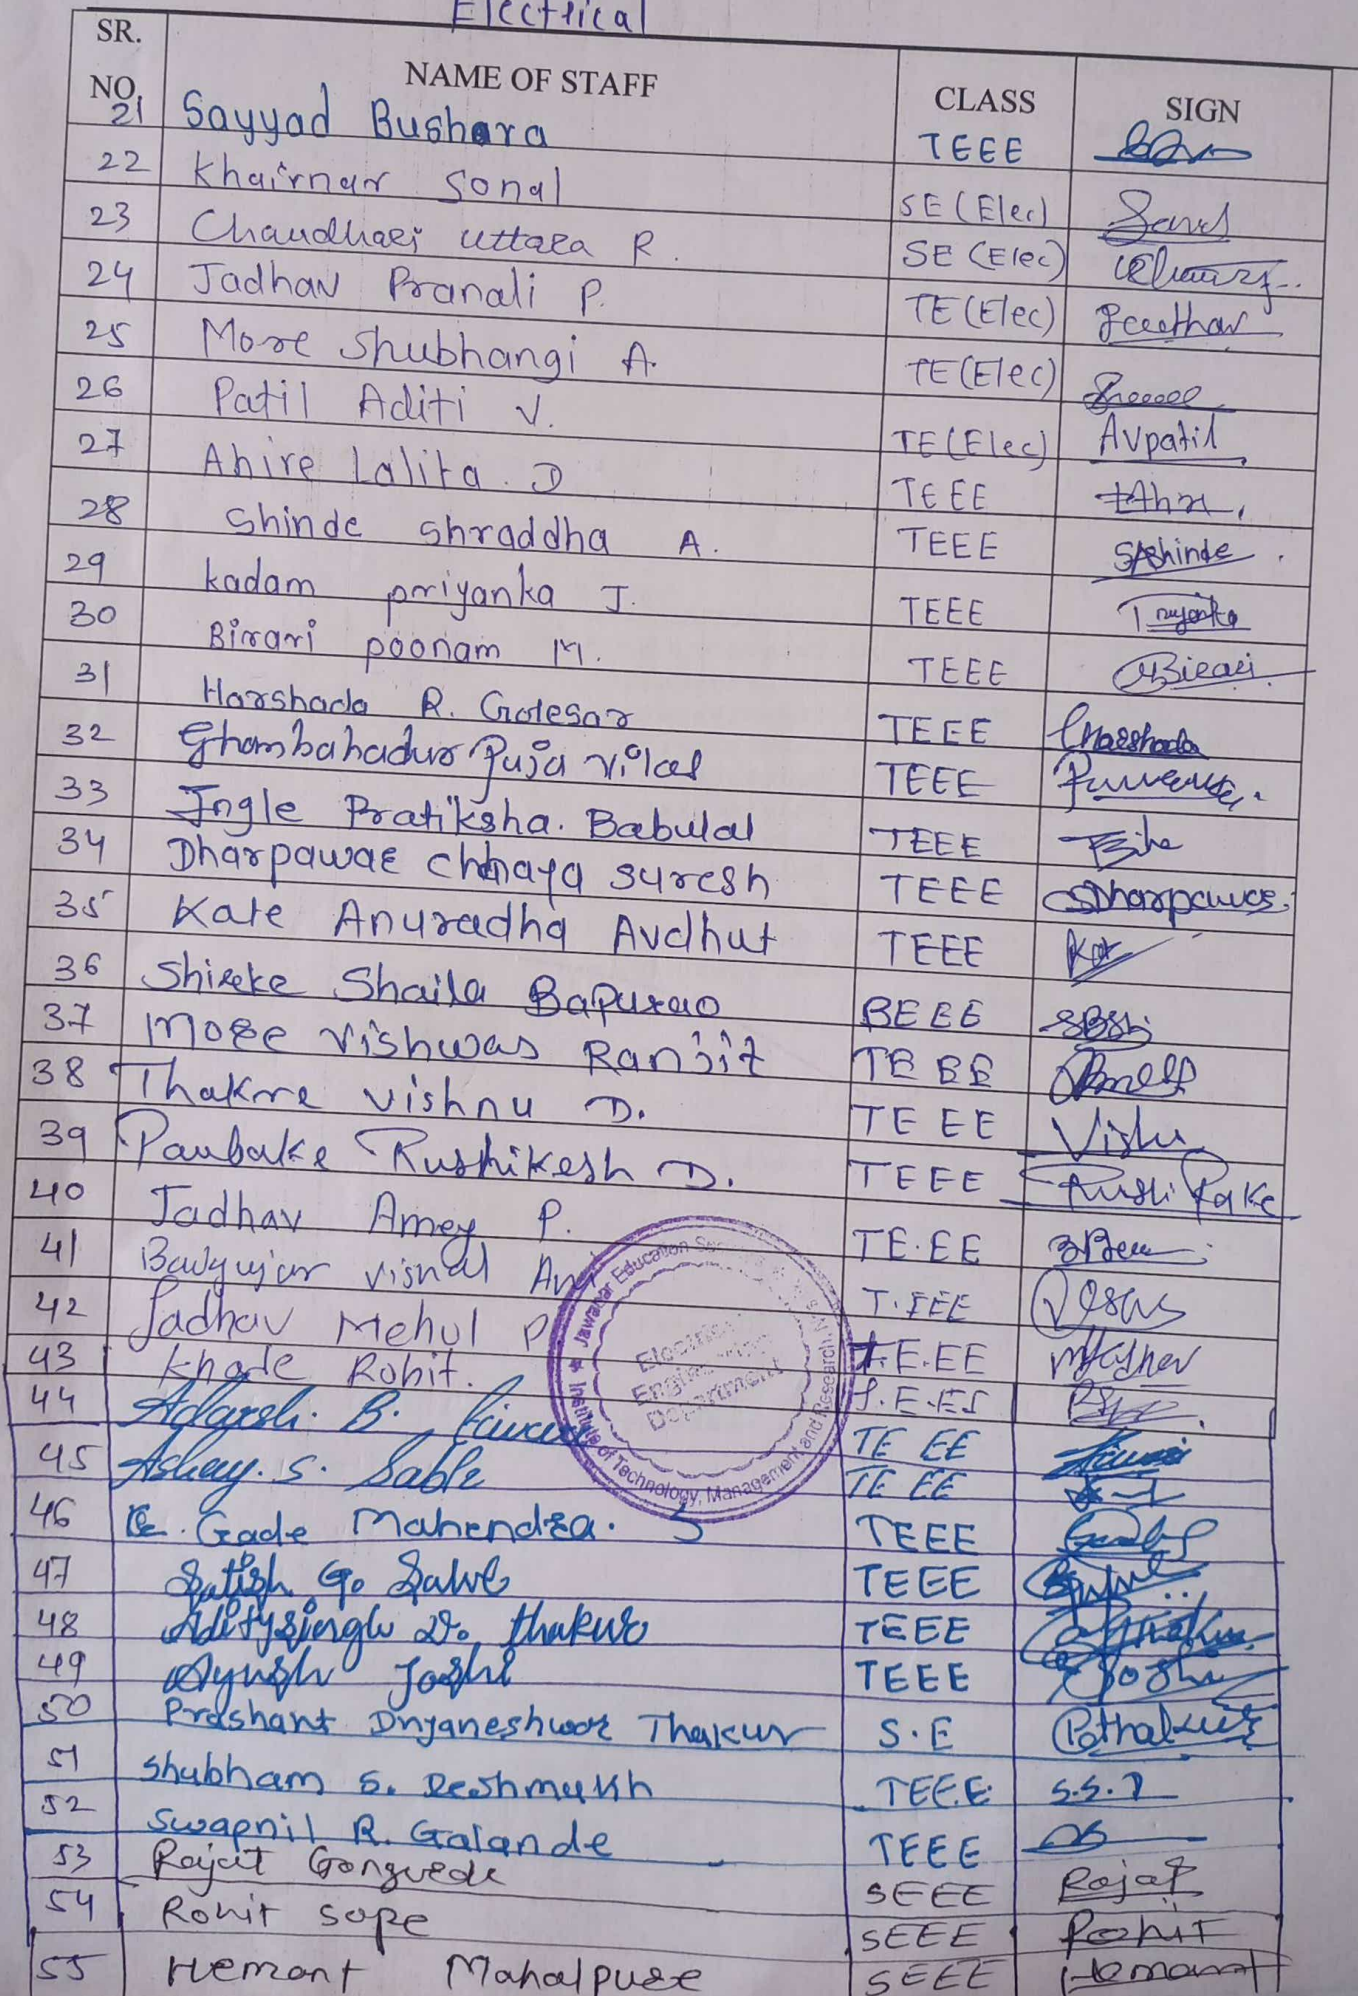 Electrical
SR. NO. NAME OF STAFF CLASS SIGN
21 Sayyad Bushara TEEE
22 Khairnar Sonal SE (Elec)
23 Chaudhari uttara R. SE (Elec)
24 Jadhav Pranali P. TE (Elec)
25 More Shubhangi A. TE (Elec)
26 Patil Aditi V. TE (Elec) AVpatil
27 Ahire Lalita. D TEEE
28 Shinde Shraddha A. TEEE SAShinde
29 kadam priyanka J. TEEE
30 Birari poonam M. TEEE Birari
31 Harshada R. Golesar TEEE Harshada
32 Puja Vilas TEEE
33 Ingle Pratiksha. Babulal TEEE
34 Dharpawar chhaya suresh TEEE SDharpawar
35 Kate Anuradha Avdhut TEEE
36 Shirke Shaila Bapurao BEEE
37 More Vishwas Ranjit TEEE
38 vishnu D. TEEE
39 Rushikesh D. TEEE
40 Jadhav Amey P. TE.EE
41 T.EEE
42 Jadhav Mehul P T.E.EE
43 Khade Rohit.
44 Adarsh. B. TE EE
45 S. Sable TE EE
46 Gade Mahendra. S TEEE
47 Satish G. Salve TEEE
48 thakur TEEE
49 Ayush Joshi TEEE Joshi
50 Prashant Dnyaneshwar Thakur S.E
51 Shubham S. Deshmukh TEEE. S.S.D
52 Swapnil R. Galande TEEE
53 Rajat SEEE Rajat
54 Rohit sope SEEE Rohit
55 Hemant Mahalpure SEEE Hemant
Jawahar Education
Institute of Technology, Management and Research
Electrical
Engineering
Department